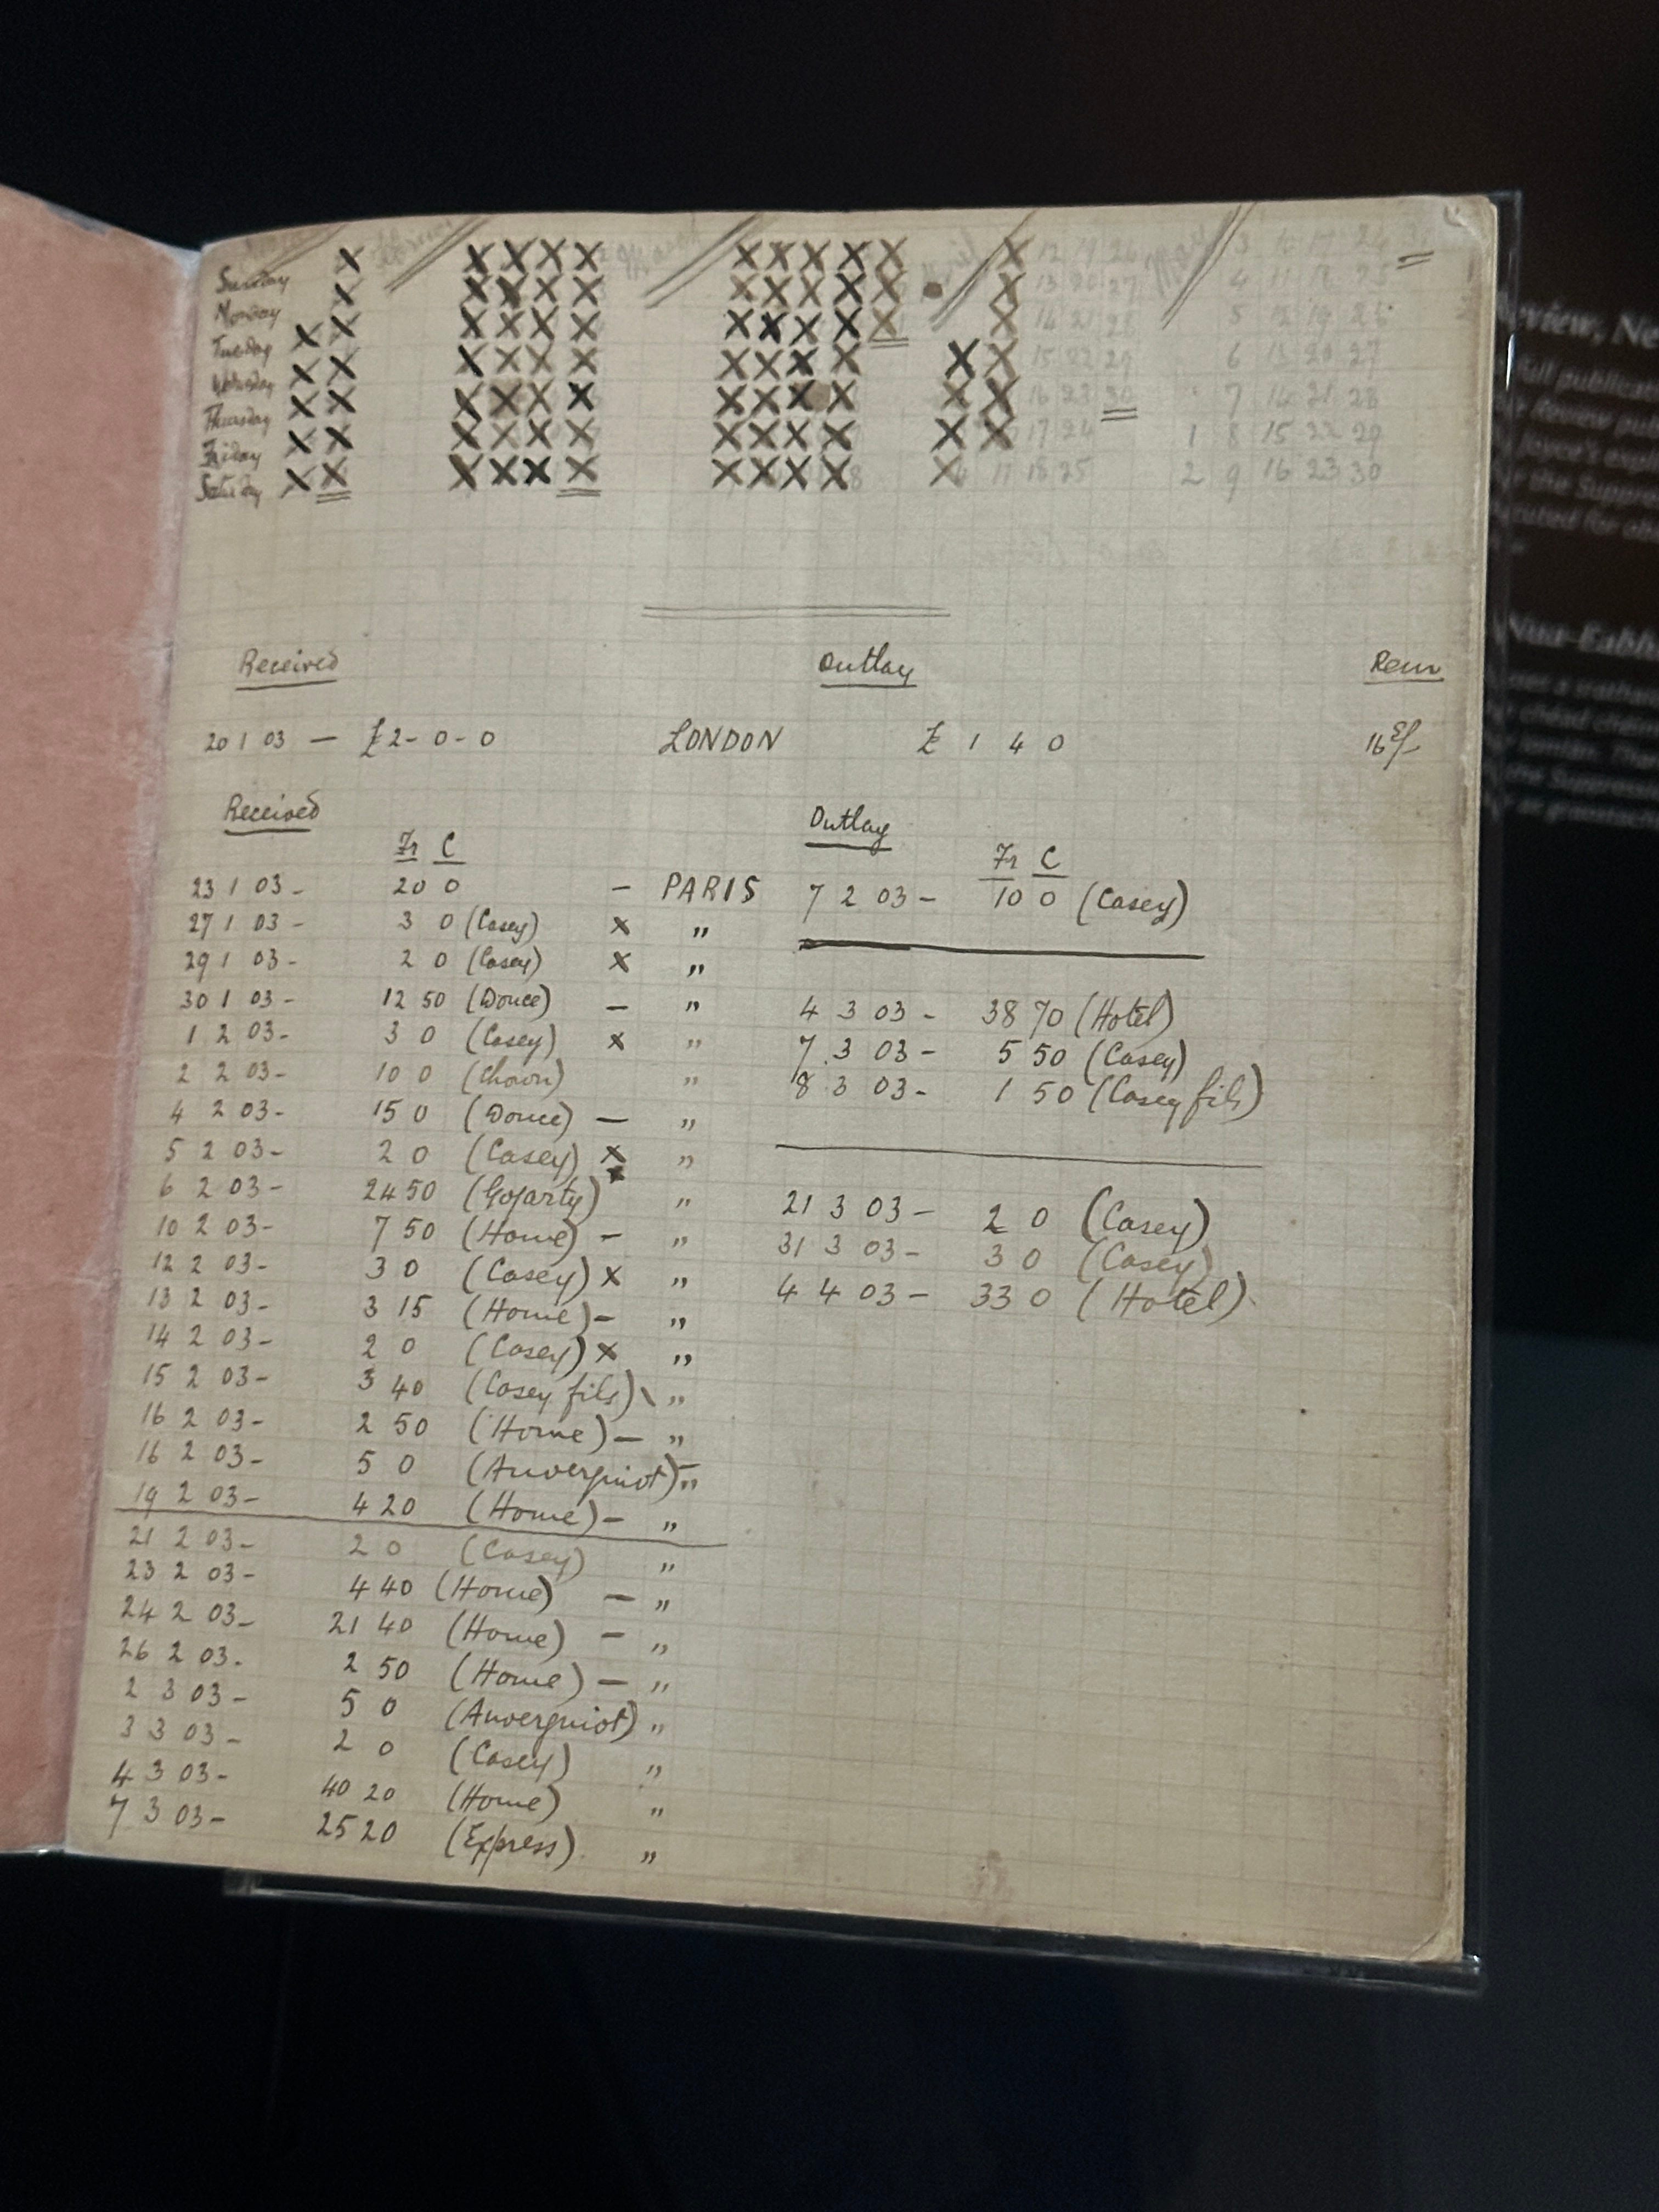 Sunday X X X X X X X X X X X 12 19 26 3 10 17 24
Monday X X X X X X X X X X X 13 20 27 4 11 18 25
Tuesday X X X X X X X X X X X X 14 21 28 5 12 19 26
Wednesday X X X X X X X X X X X X 15 22 29 6 13 20 27
Thursday X X X X X X X X X X X X 16 23 30 7 14 21 28
Friday X X X X X X X X X X X X 17 24 1 8 15 22 29
Saturday X X X X X X X X X X X 11 18 25 2 9 16 23 30
Received Outlay Rem
20 1 03 — £2-0-0 LONDON £ 1 4 0 16
Received Outlay
Fr C Fr C
23 1 03 - 20 0 — PARIS 7 2 03 - 10 0 (Casey)
27 1 03 - 3 0 (Casey) X „
29 1 03 - 2 0 (Casey) X „
30 1 03 - 12 50 (Douce) — „ 4 3 03 - 38 70 (Hotel)
1 2 03 - 3 0 (Casey) X „ 7 3 03 - 5 50 (Casey)
2 2 03 - 10 0 (Chown) „ 8 3 03 - 1 50 (Casey fils)
4 2 03 - 15 0 (Douce) — „
5 2 03 - 2 0 (Casey) X „
6 2 03 - 24 50 (Gogarty) X „ 21 3 03 - 2 0 (Casey)
10 2 03 - 7 50 (Home) - „ 31 3 03 - 3 0 (Casey)
12 2 03 - 3 0 (Casey) X „ 4 4 03 - 33 0 (Hotel)
13 2 03 - 3 15 (Home) - „
14 2 03 - 2 0 (Casey) X „
15 2 03 - 3 40 (Casey fils) \ „
16 2 03 - 2 50 (Home) — „
16 2 03 - 5 0 (Auvergniot) - „
19 2 03 - 4 20 (Home) - „
21 2 03 - 2 0 (Casey) „
23 2 03 - 4 40 (Home) — „
24 2 03 - 21 40 (Home) - „
26 2 03 - 2 50 (Home) — „
2 3 03 - 5 0 (Auvergniot) „
3 3 03 - 2 0 (Casey) „
4 3 03 - 40 20 (Home) „
7 3 03 - 25 20 (Express) „